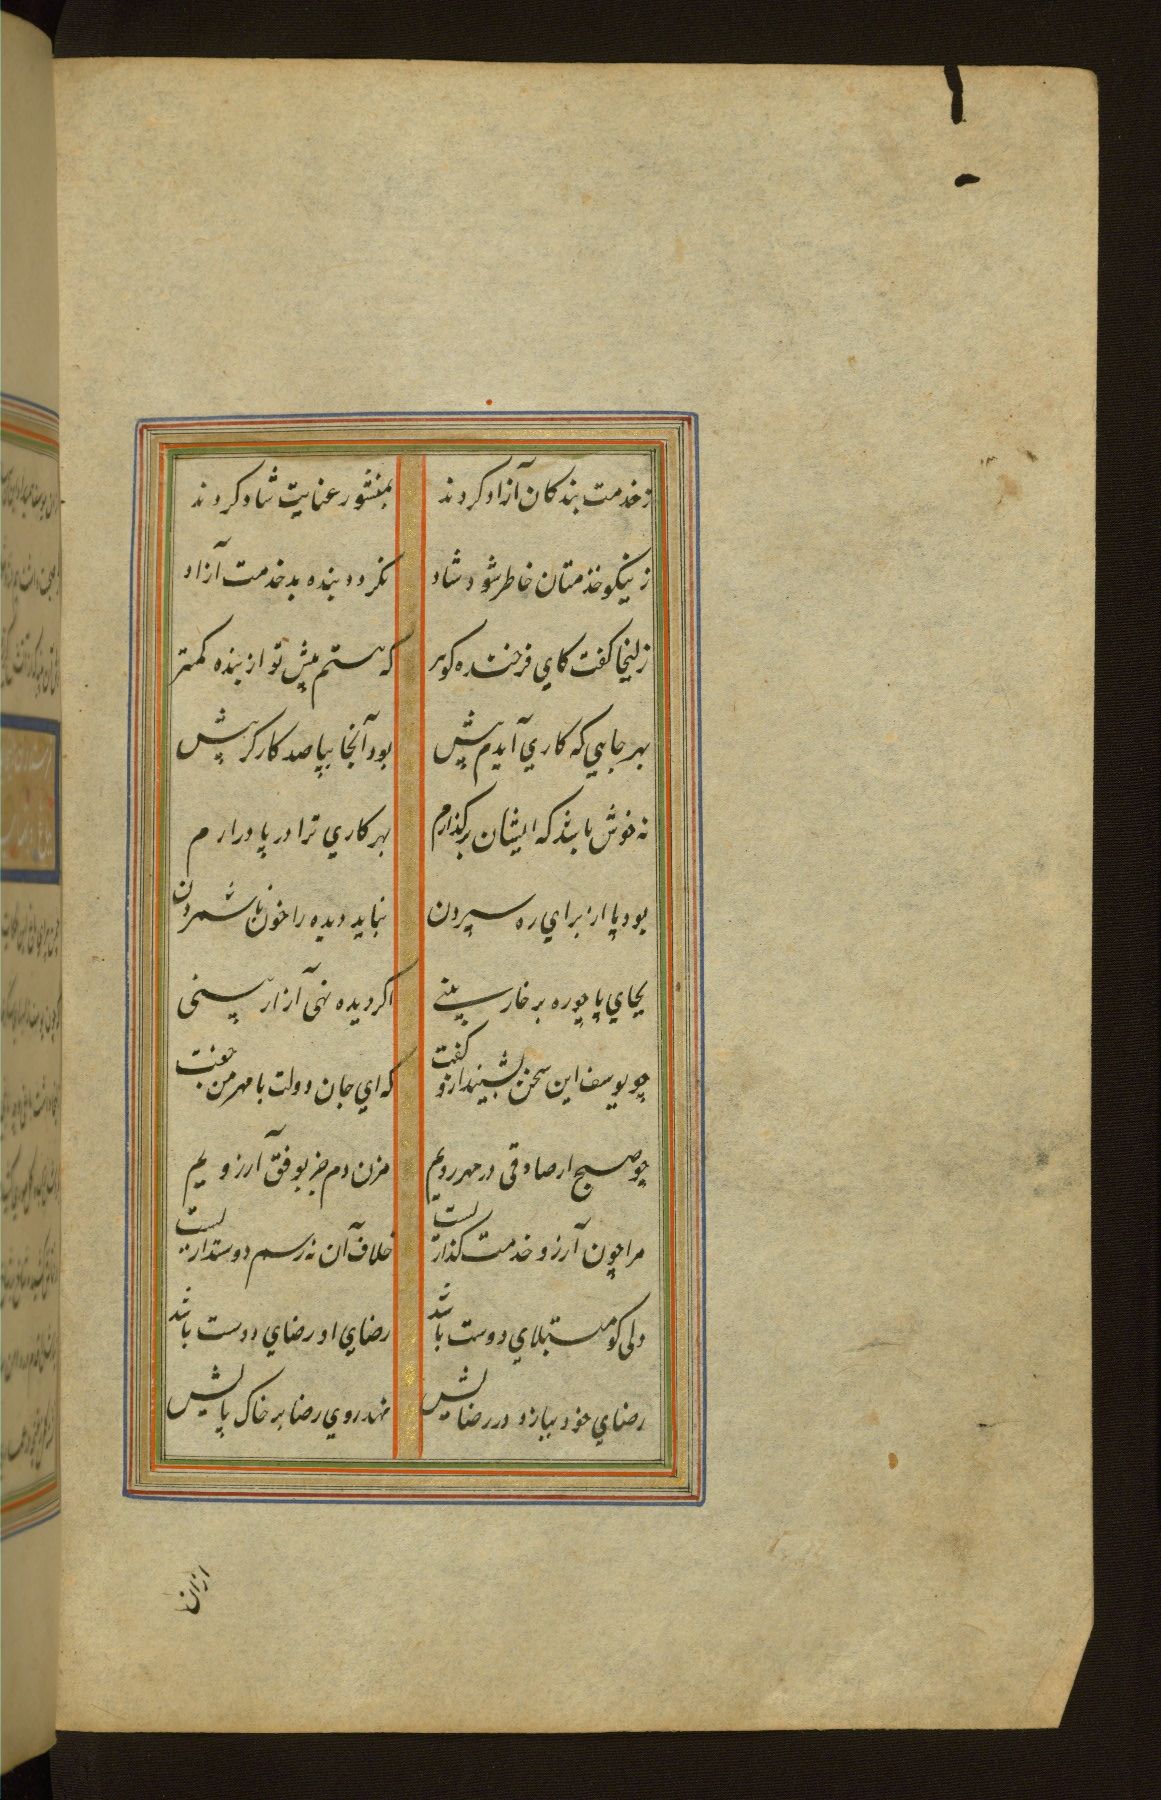 زخدمت بندکان آزاد کردند بمنشور عنایت شاد کردند
ز نیکو خذمتان خاطر شود شاد نکردد بنده بد خدمت آزاد
زلیخا کفت کاي فرخنده کوهر که هستم پیش تو از بنده کمتر
بهر جایي که کاري آیدم پیش بود آنجا بپا صد کارکر پیش
نه خوش باشد که ایشان برکذارم بهر کاري ترا در پا درارم
بود پا از براي ره سپردن نباید دیده را خون پا شمردن
بجاي پا چو ره بر خار بیني اکر دیده نهی آزار بینی
چو یوسف این سخن بشنید ازو کفت که اي جان و دولت با مهر من جفت
چو صبح ار صادقی در مهر رویم مزن دم جز بوفق آرزویم
مرا چون آرزو خدمت کذاریست خلاف آن نه رسم دوستداریست
دلی کو مبتلاي دوست باشد رضاي او رضاي دوست باشد
رضاي خود ببازد در رضایش نهد روي رضا بر خاک پایش
ازان